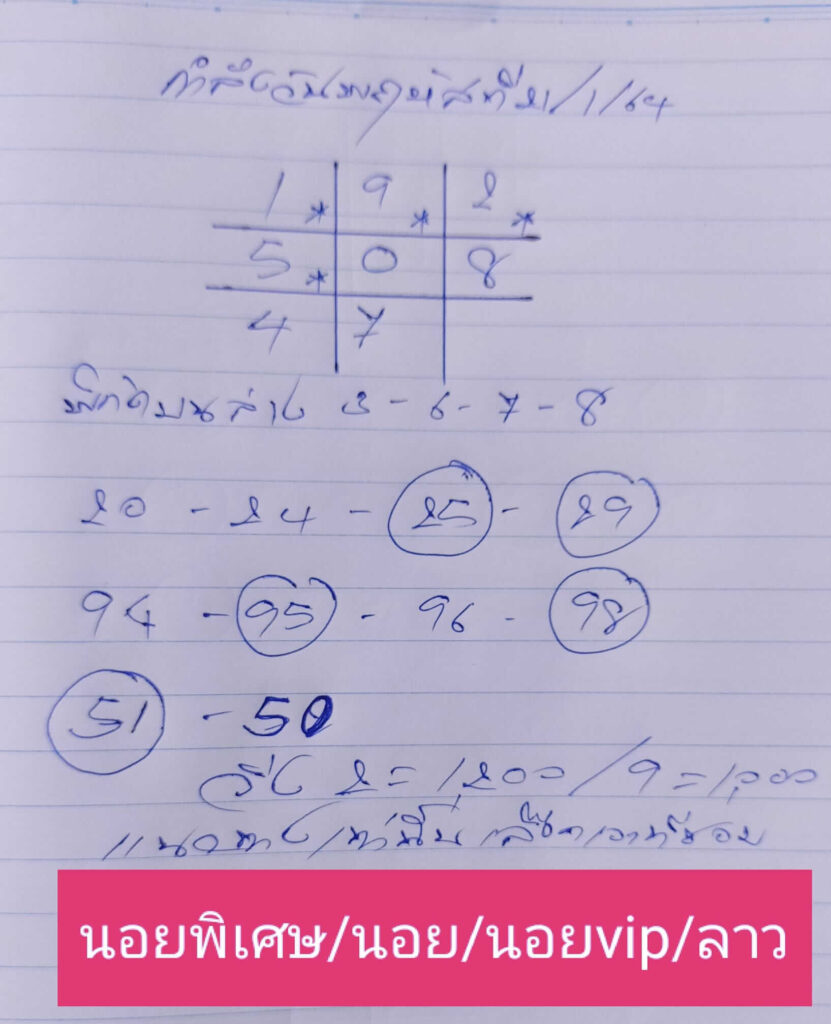 กำลังวันพฤหัสที่21/1/64
1* 9* 2*
5* 0 8
4 7
บนล่าง 3-6-7-8
20 - 24 - 25 - 29
94 - 95 - 96 - 98
51 - 50
วิ่ง 2=1,200/9=1,000
แนวทางเท่านั้นเลือกเอาที่ชอบ
นอยพิเศษ/นอย/นอยvip/ลาว